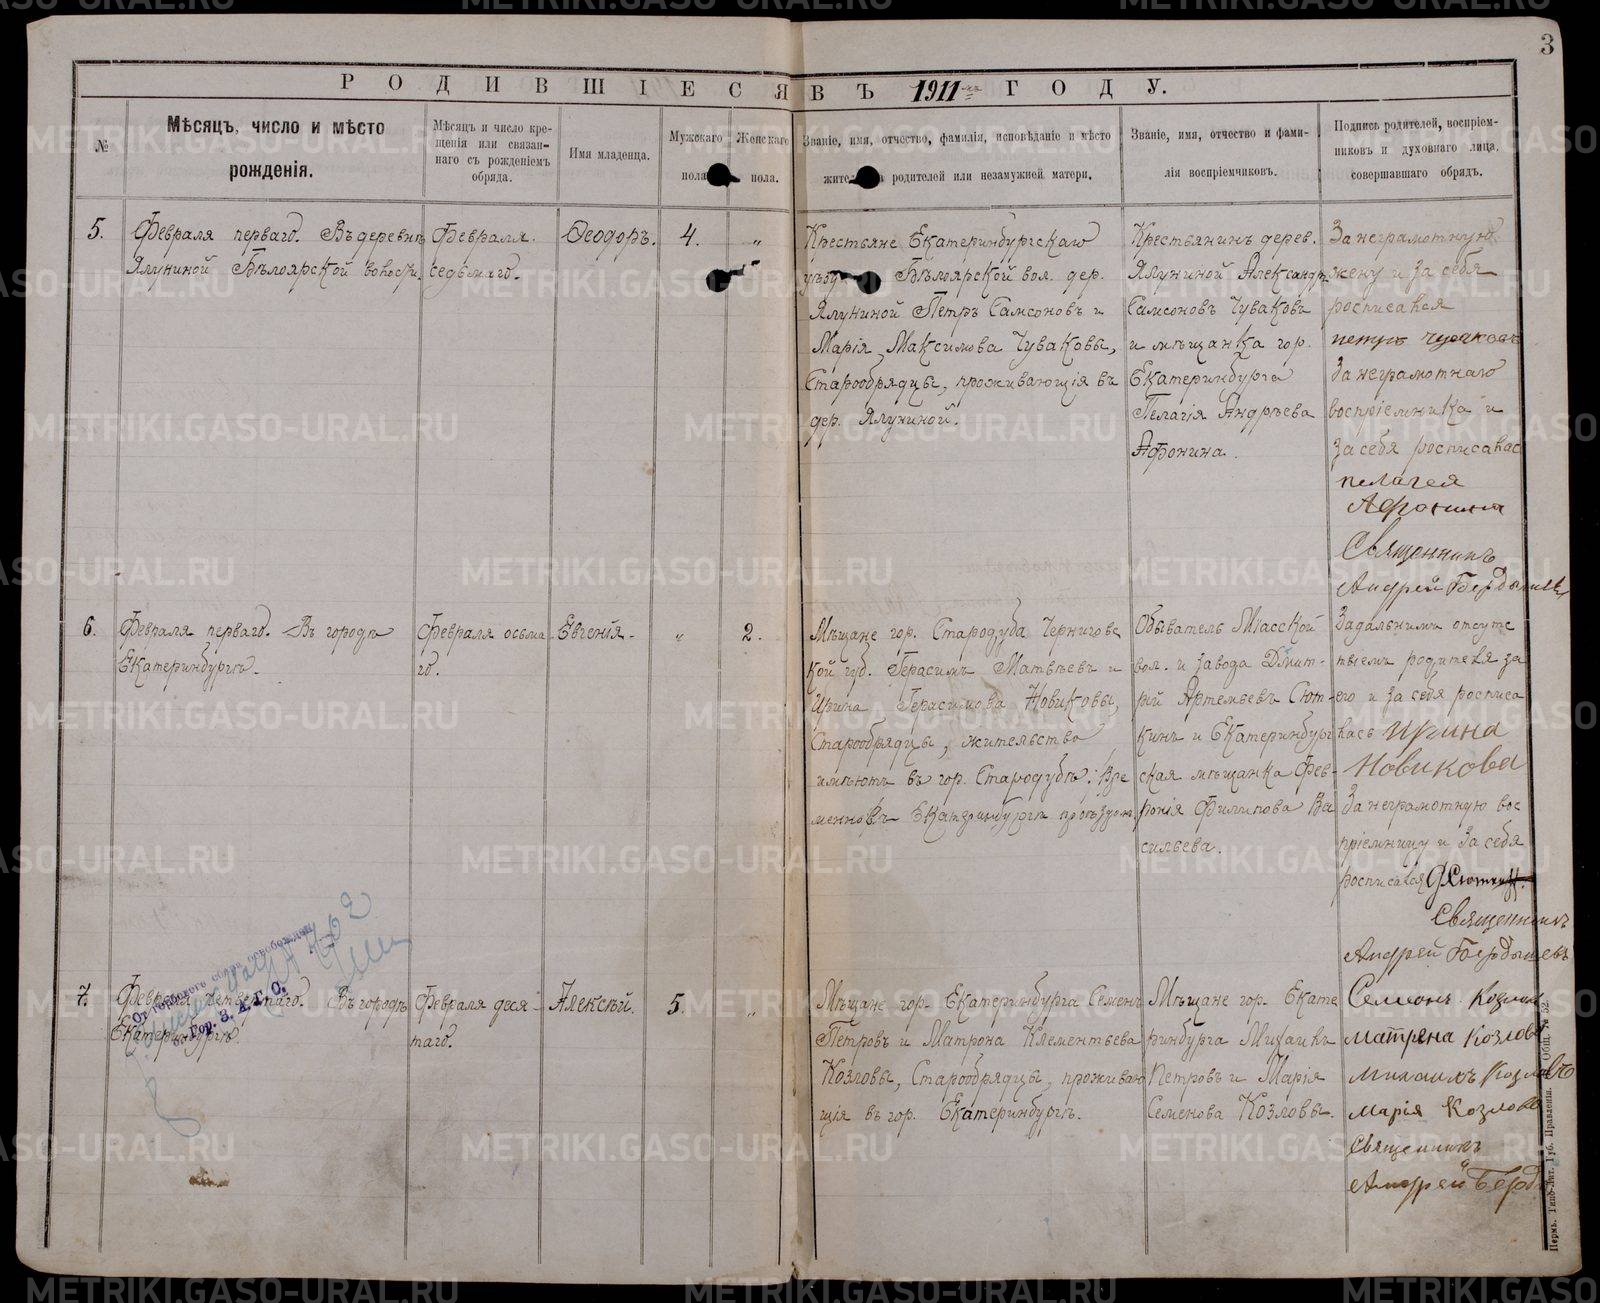 3
РОДИВШІЕСЯ ВЪ 1911 ГОДУ.
№
Мѣсяцъ, число и мѣсто
рожденія.
Мѣсяцъ и число кре-
щенія или связан-
наго съ рожденіемъ
обряда.
Имя младенца.
Мужскаго
пола.
Женскаго
пола.
Званіе, имя, отчество, фамилія, исповѣданіе и мѣсто
родителей или незамужней матери.
Званіе, имя, отчество и фами-
лія воспріемчиковъ.
Подпись родителей, воспріем-
никовъ и духовнаго лица,
совершавшаго обрядъ.
5.
Февраля перваго. Въ деревнѣ
Ялуниной Бѣлоярской волости.
Февраля
седьмаго.
Ѳеодоръ.
4.
„
Крестьяне Екатеринбургскаго
Бѣлоярской вол. дер.
Ялуниной Петръ Самсоновъ и
Марія Максимова Чуваковы,
Старообрядцы, проживающія въ
дер. Ялуниной.
Крестьянинъ дерев.
Ялуниной Александръ
Самсоновъ Чуваковъ
и мѣщанка гор.
Екатеринбурга
Пелагія Андрѣева
Афонина.
За неграмотную
жену и за себя
росписался
петръ чуваковъ
За неграмотнаго
воспріемника и
за себя росписалас
пелагея
Афонина
Священникъ
Андрей Бердышевъ
6.
Февраля перваго. Въ городѣ
Екатеринбургѣ.
Февраля осьма
го.
Евгенія.
„
2.
Мѣщане гор. Стародуба Чернигове
кой губ. Герасимъ Матвѣевъ и
Ирина Герасимова Новиковы,
Старообрядцы, жительство
имѣютъ въ гор. Стародубѣ; Вре
менно въ Екатеринбургѣ проѣздомъ
Обыватель Міасской
вол. и завода Дмит-
рій Артемьевъ Сют-
кинъ и Екатеринбург
ская мѣщанка Фев-
ронія Филипова Ва
сильева.
За дальнимъ отсутс
твіемъ родителя за
его и за себя росписа
лась Ирина
Новикова
За неграмотную вос
пріемницу и за себя
росписался Д Сюткин
Священникъ
Андрей Бердышевъ
Гор. З. А. Г. С.
7.
Февраля четвертаго. Въ городѣ
Екатеринбургѣ
Февраля деся-
таго.
Алексѣй.
5.
„
Мѣщане гор. Екатеринбурга Семенъ
Петровъ и Матрона Клементьева
Козловы, Старообрядцы, проживаю
щія въ гор. Екатеринбургѣ.
Мѣщане гор. Екате
ринбурга Михаилъ
Петровъ и Марія
Семенова Козловы.
Семионъ Козлов
матрена Козлова
михаилъ Козловъ
Марія Козлова
Священникъ
Андрей Берд
Пермь. Типо-Лит. Губ. Правленія. Общ. № 52.
METRIKI.GASO-URAL.RU